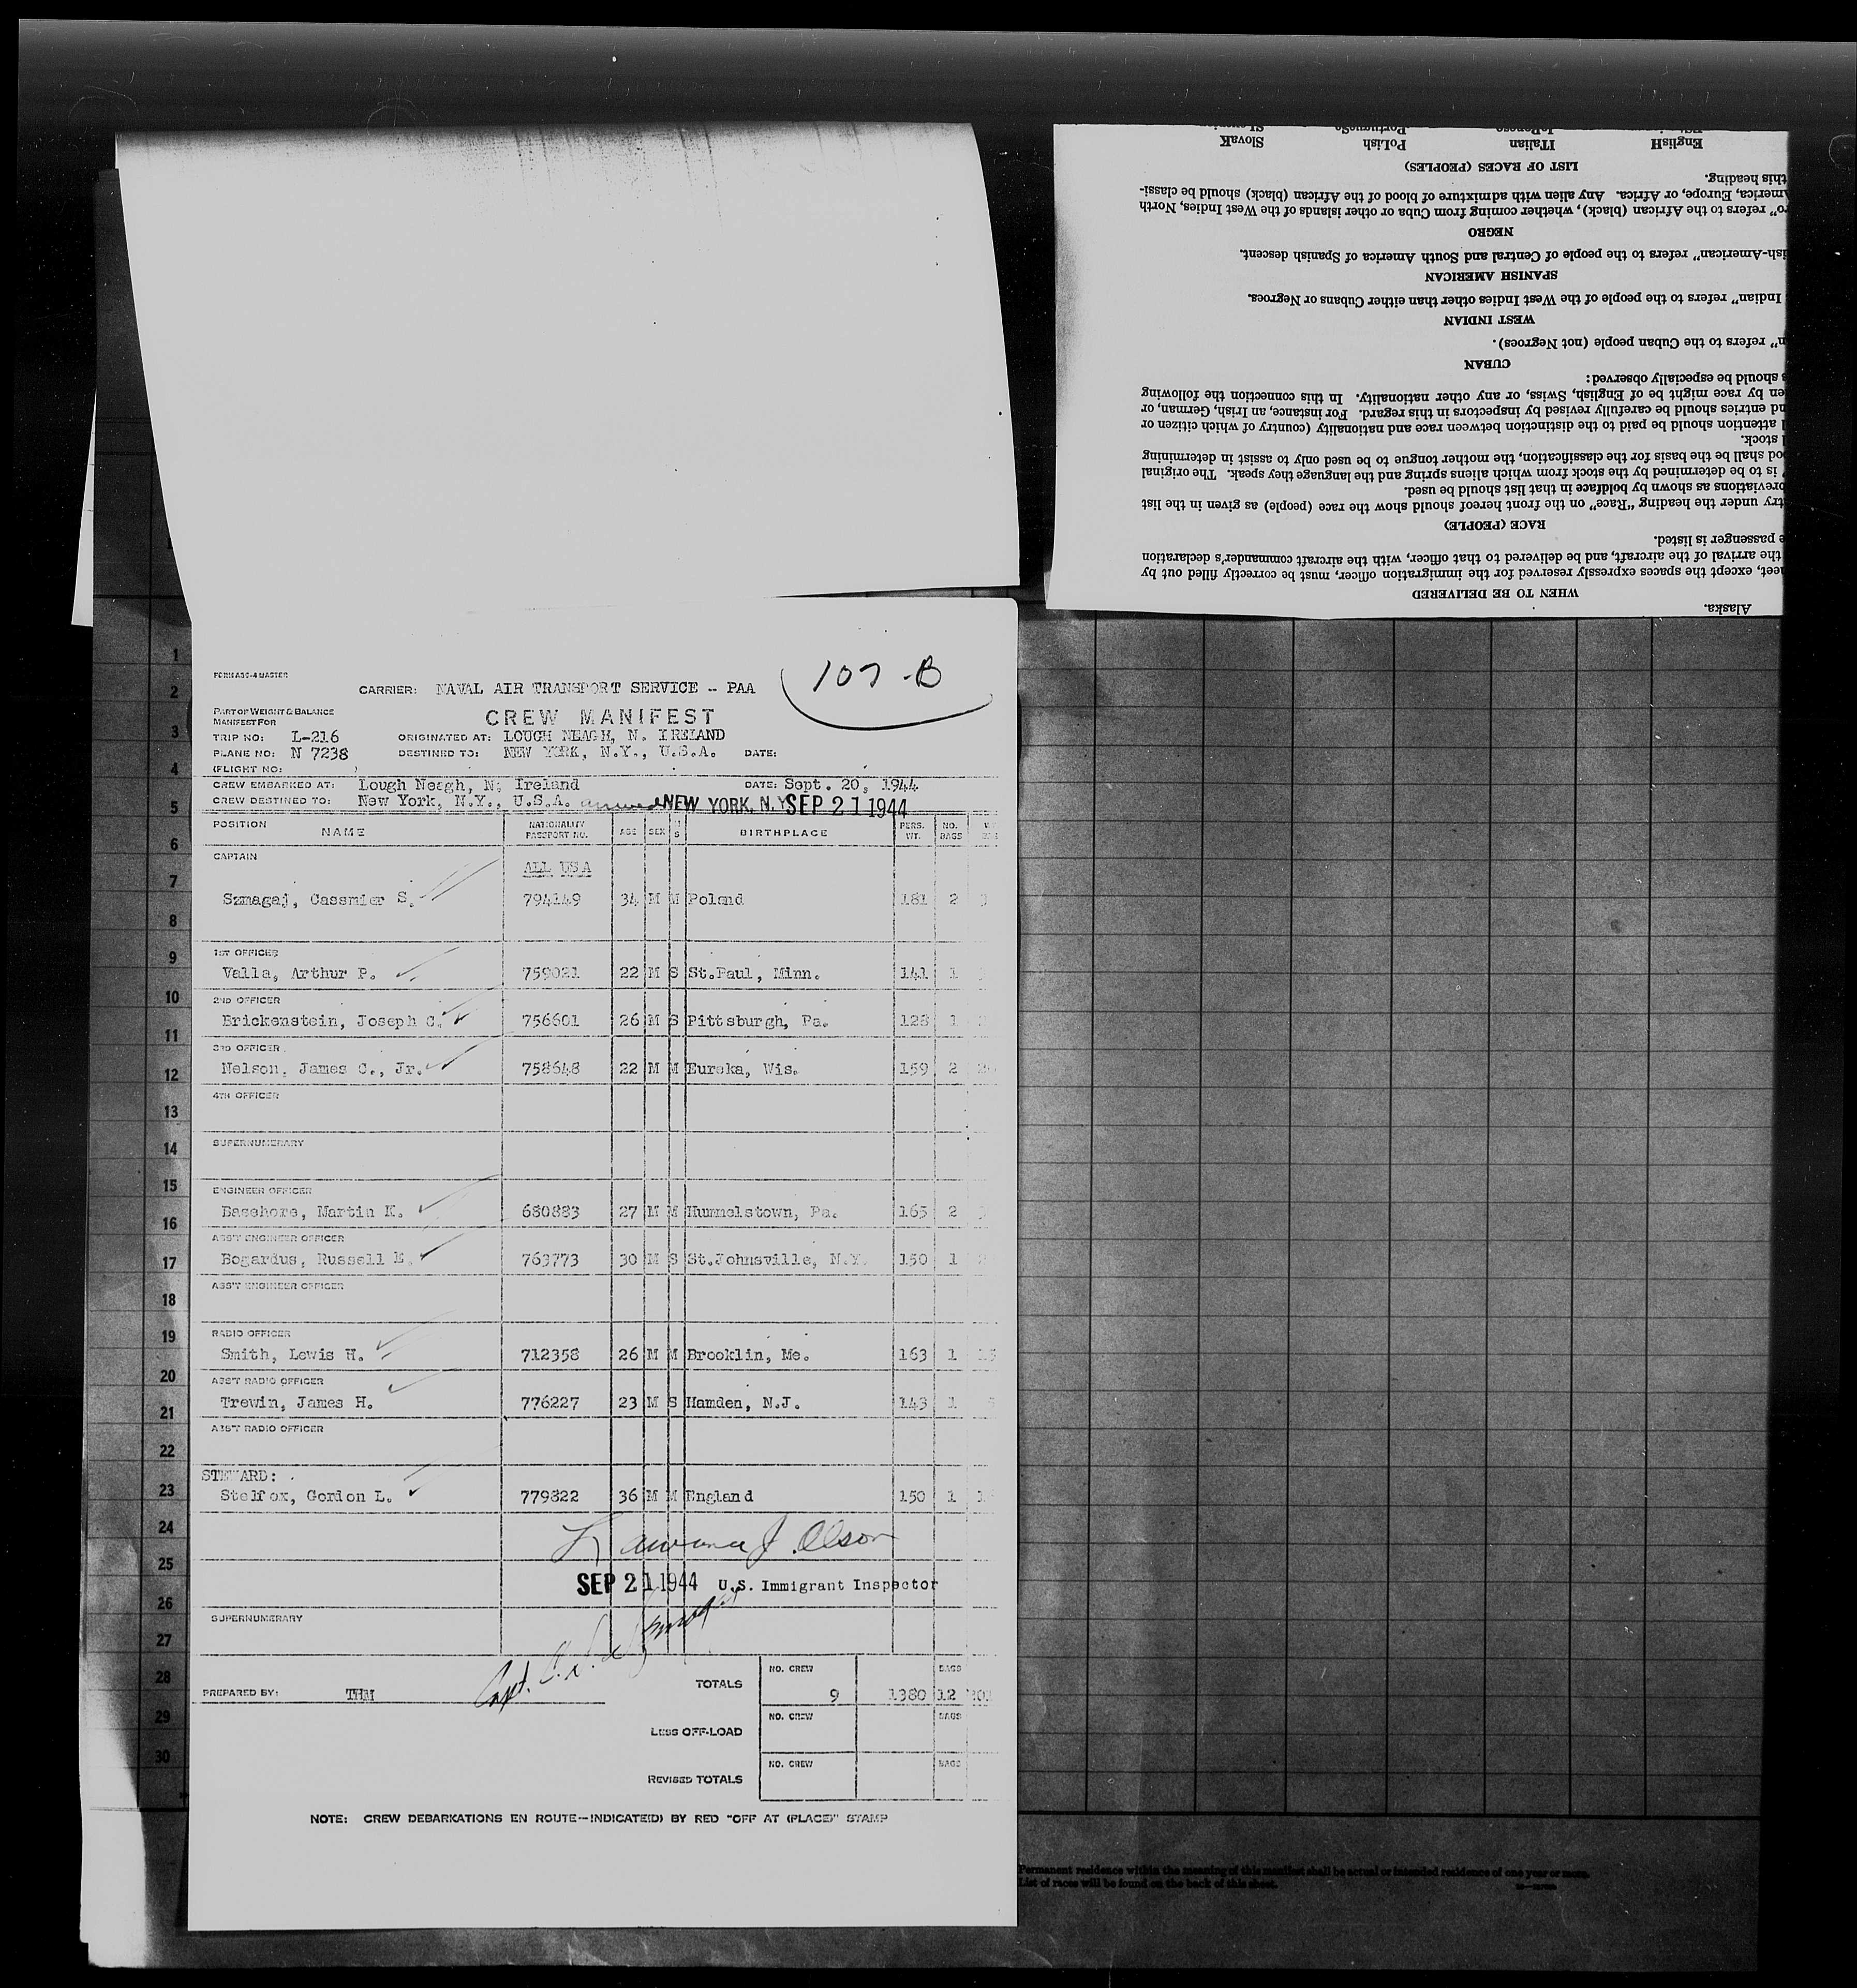 FORM ABC-4 MASTER
107-B
CARRIER: NAVAL AIR TRANSPORT SERVICE - PAA
PART OF WEIGHT & BALANCE
MANIFEST FOR
CREW MANIFEST
TRIP NO: L-216 ORIGINATED AT: LOUGH NEAGH, N. IRELAND
PLANE NO: N 7238 DESTINED TO: NEW YORK, N.Y., U.S.A. DATE:
(FLIGHT NO: )
CREW EMBARKED AT: Lough Neagh, N. Ireland DATE: Sept. 20, 1944
CREW DESTINED TO: New York, N.Y., U.S.A. arrived NEW YORK, N.Y. SEP 21 1944
POSITION NAME NATIONALITY PASSPORT NO. AGE SEX M S BIRTHPLACE PERS. WT. NO. BAGS
CAPTAIN
ALL USA
Szmagaj, Cassmier S. 794149 34 M M Poland 181 2
1ST OFFICER
Valla, Arthur P. 759021 22 M S St.Paul, Minn. 141 1
2ND OFFICER
Brickenstein, Joseph C. 756601 26 M S Pittsburgh, Pa. 128 1
3RD OFFICER
Nelson, James C., Jr. 758648 22 M M Eureka, Wis. 159 2
4TH OFFICER
SUPERNUMERARY
ENGINEER OFFICER
Basehore, Martin K. 680883 27 M M Hummelstown, Pa. 165 2
ASS'T ENGINEER OFFICER
Bogardus, Russell E. 763773 30 M S St.Johnsville, N.Y. 150 1
ASS'T ENGINEER OFFICER
RADIO OFFICER
Smith, Lewis H. 712358 26 M M Brooklin, Me. 163 1
ASS'T RADIO OFFICER
Trewin, James H. 776227 23 M S Hamden, N.J. 143 1
ASS'T RADIO OFFICER
STEWARD:
Stelfox, Gordon L. 779822 36 M M England 150 1
Lawrence J. Olson
SEP 21 1944 U.S. Immigrant Inspector
SUPERNUMERARY
Capt. C. S. Szmagaj
PREPARED BY: THM
TOTALS NO. CREW 9 1380 BAGS 12
LESS OFF-LOAD NO. CREW BAGS
REVISED TOTALS NO. CREW BAGS
NOTE: CREW DEBARKATIONS EN ROUTE--INDICATE(D) BY RED "OFF AT (PLACE)" STAMP
1
2
3
4
5
6
7
8
9
10
11
12
13
14
15
16
17
18
19
20
21
22
23
24
25
26
27
28
29
30
Alaska.
WHEN TO BE DELIVERED
eet, except the spaces expressly reserved for the immigration officer, must be correctly filled out by
the arrival of the aircraft, and be delivered to that officer, with the aircraft commander's declaration
e passenger is listed.
RACE (PEOPLE)
try under the heading "Race" on the front hereof should show the race (people) as given in the list
breviations as shown by boldface in that list should be used.
is to be determined by the stock from which aliens spring and the language they speak. The original
od shall be the basis for the classification, the mother tongue to be used only to assist in determining
l stock.
l attention should be paid to the distinction between race and nationality (country of which citizen or
nd entries should be carefully revised by inspectors in this regard. For instance, an Irish, German, or
en by race might be of English, Swiss, or any other nationality. In this connection the following
s should be especially observed:
CUBAN
n" refers to the Cuban people (not Negroes).
WEST INDIAN
Indian" refers to the people of the West Indies other than either Cubans or Negroes.
SPANISH AMERICAN
ish-American" refers to the people of Central and South America of Spanish descent.
NEGRO
ro" refers to the African (black), whether coming from Cuba or other islands of the West Indies, North
America, Europe, or Africa. Any alien with admixture of blood of the African (black) should be classi-
this heading.
LIST OF RACES (PEOPLES)
EnglisH ITalian PoLish SlovaK
Permanent residence within the meaning of this manifest shall be actual or intended residence of one year or more.
List of races will be found on the back of this sheet.